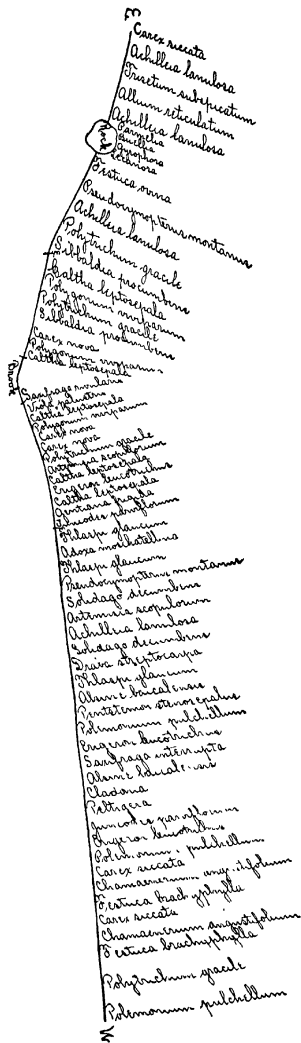 E
Carex siccata
Achilleia lanulosa
Trisetum subspicatum
Allium reticulatum
Achilleia lanulosa
Rock
Parmelia
Gyrophora
Lecanora
Festuca ovina
Pseudocymopterus montanus
Achilleia lanulosa
Polytrichum gracile
Sibbaldia procumbens
Caltha leptosepala
Polygonum viviparum
Polytrichum gracile
Sibbaldia procumbens
Carex nova
Polygonum viviparum
Caltha leptosepala
Brook
Saxifraga
Viola palustris
Caltha leptosepala
Polygonum viviparum
Carex nova
Carex nova
Polytrichum gracile
Artemisia scopulorum
Caltha leptosepala
Erigeron leucotrichus
Caltha leptosepala
Gentiana frigida
Juncodes parviflorum
Thlaspi glaucum
Adoxa moschatellina
Thlaspi glaucum
Pseudocymopterus montanus
Solidago decumbens
Artemisia scopulorum
Achilleia lanulosa
Solidago decumbens
Draba streptocarpa
Thlaspi glaucum
Alsine baicalensis
Pentstemon stenosepalus
Polemonium pulchellum
Erigeron leucotrichus
Saxifraga interrupta
Alsine baicalensis
Cladonia
Peltigera
Juncodes parviflorum
Erigeron leucotrichus
Polemonium pulchellum
Carex siccata
Chamaenerium angustifolium
Festuca brachyphylla
Carex siccata
Chamaenerium angustifolium
Festuca brachyphylla
Polytrichum gracile
Polemonium pulchellum
W